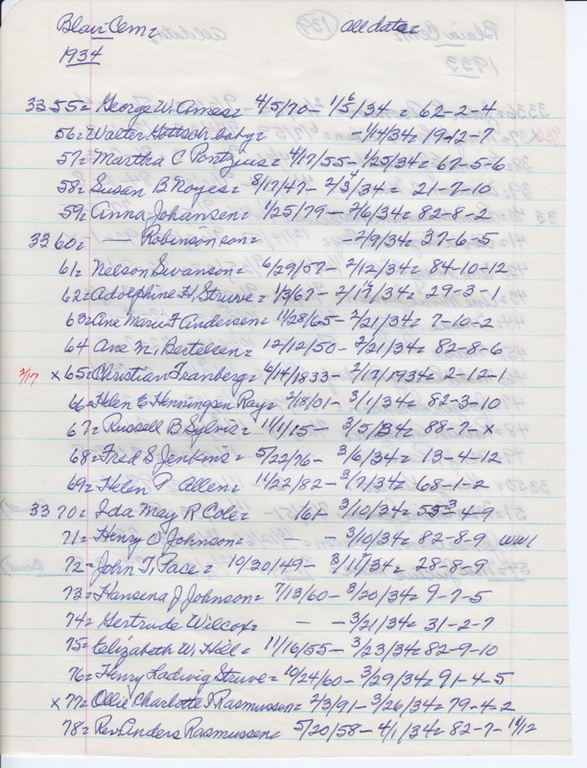 Blair Cem= all data=
1934
3355= George W. Ames= 4/5/70- 1/5/34= 62-2-4
56= Walter Gottsch baby= -1/14/34= 19-12-7
57= Martha C Pontzius= 4/17/55- 1/25/34= 67-5-6
58= Susan B Noyes= 8/17/47- 2/3/34= 21-7-10
59= Anna Johansen= 1/25/79- 2/6/34= 82-8-2
3360= — Robinson son= -2/9/34= 37-6-5
61= Nelson Swanson= 6/29/57- 2/12/34= 84-10-12
62= Adolphine H, Struve= 1/3/67- 2/17/34= 29-3-1
63= Ane Marie F Andersen= 11/28/65- 2/21/34= 7-10-2
64 Ane M. Bertelsen= 12/12/50- 2/21/34= 82-8-6
2/17 x 65= Christian Tranberg= 4/14/1833- 2/17/1934= 2-12-1
66= Helen E Henningsen Ray= 2/18/01- 3/1/34= 82-3-10
67= Russell B Sylvis= 11/1/15- 3/5/34= 88-7-x
68= Fred S Jenkins= 5/22/76- 3/6/34= 13-4-12
69= Helen P. Allen= 11/22/82- 3/7/34= 68-1-2
3370= Ida May R Cole= 3/10/34= 4-9
71= Henry O Johnson= - - 3/10/34= 82-8-9 WW1
72= John T. Pace= 10/30/49- 3/11/34= 28-8-9
73= Hansena J Johnson= 7/13/60- 3/20/34= 9-7-5
74= Gertrude Wilcox= - -3/21/34= 31-2-7
75= Elizabeth W. Hill= 11/16/55- 3/23/34= 82-9-10
76= Henry Ludwig Struve= 10/24/60- 3/29/34= 91-4-5
x 77= Ollie Charlotte J Rasmussen= 2/3/91- 3/26/34= 79-4-2
78= Rev. Anders Rasmussen= 5/20/58- 4/1/34= 82-7- 11/12